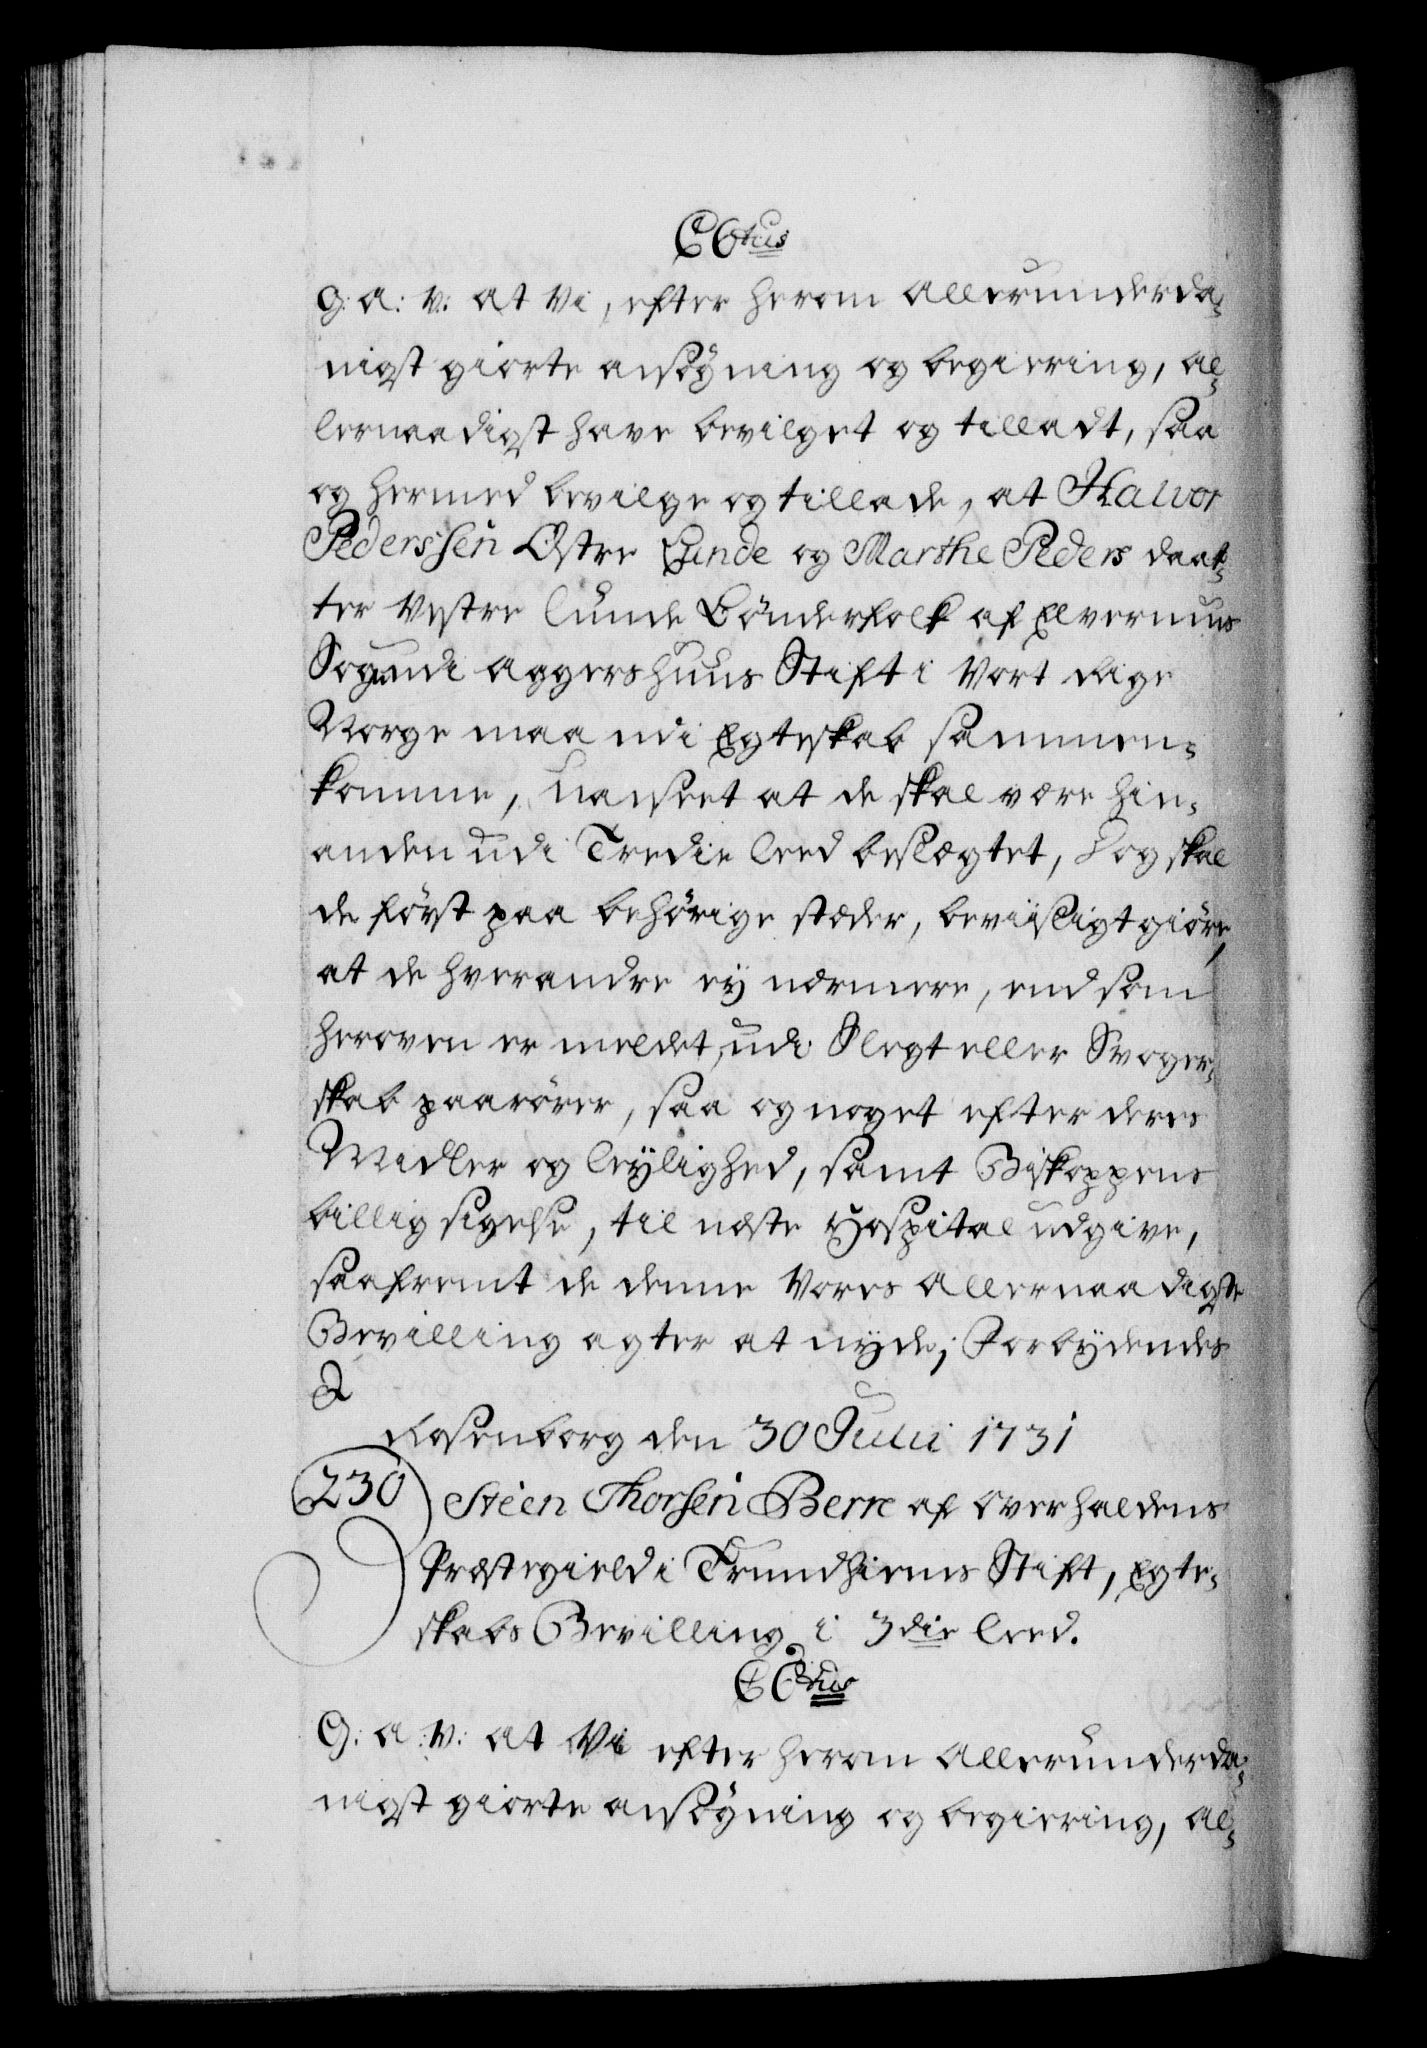 C6tus
G: A: V: at Vi, efter herom Allerunderda-
nigst giorte ansøgning og begiering, Al-
lernaadigst have bevilget og tilladt, saa
og hermed bevilge og tillade, at Halvor
Pederssen Østre Lunde og Marthe Peders daat-
ter Vestre Lunde Bønderfolk af Elverums
Sogn udi Aggershuus Stift i Vort Rige
Norge maa udi Egteskab sammen-
komme, uanseet at de skal være hin-
anden udi Tredie leed beslægtet, Dog skal
de først paa behørige stæder, beviisligt giøre,
at de hverandre ey nærmere, end som
heroven er meldet, udi Slegt eller Svoger-
skab paarører, saa og noget efter deres
Midler og leylighed, samt Biskoppens
billig sigelse, til næste Hospital udgive,
saafremt de denne Vores Allernaadigste
Bevilling agter at nyde; Forbydendes
&
Rosenborg den 30 Julii 1731
230
Steen Thorsen Berre af Overhaldens
Præstegield i Trundhiems Stift, Egte-
skabs Bevilling i 3die leed.
C6tus
G: A: V: at Vi efter herom Allerunderda-
nigst giorte ansøgning og begiering, Al-